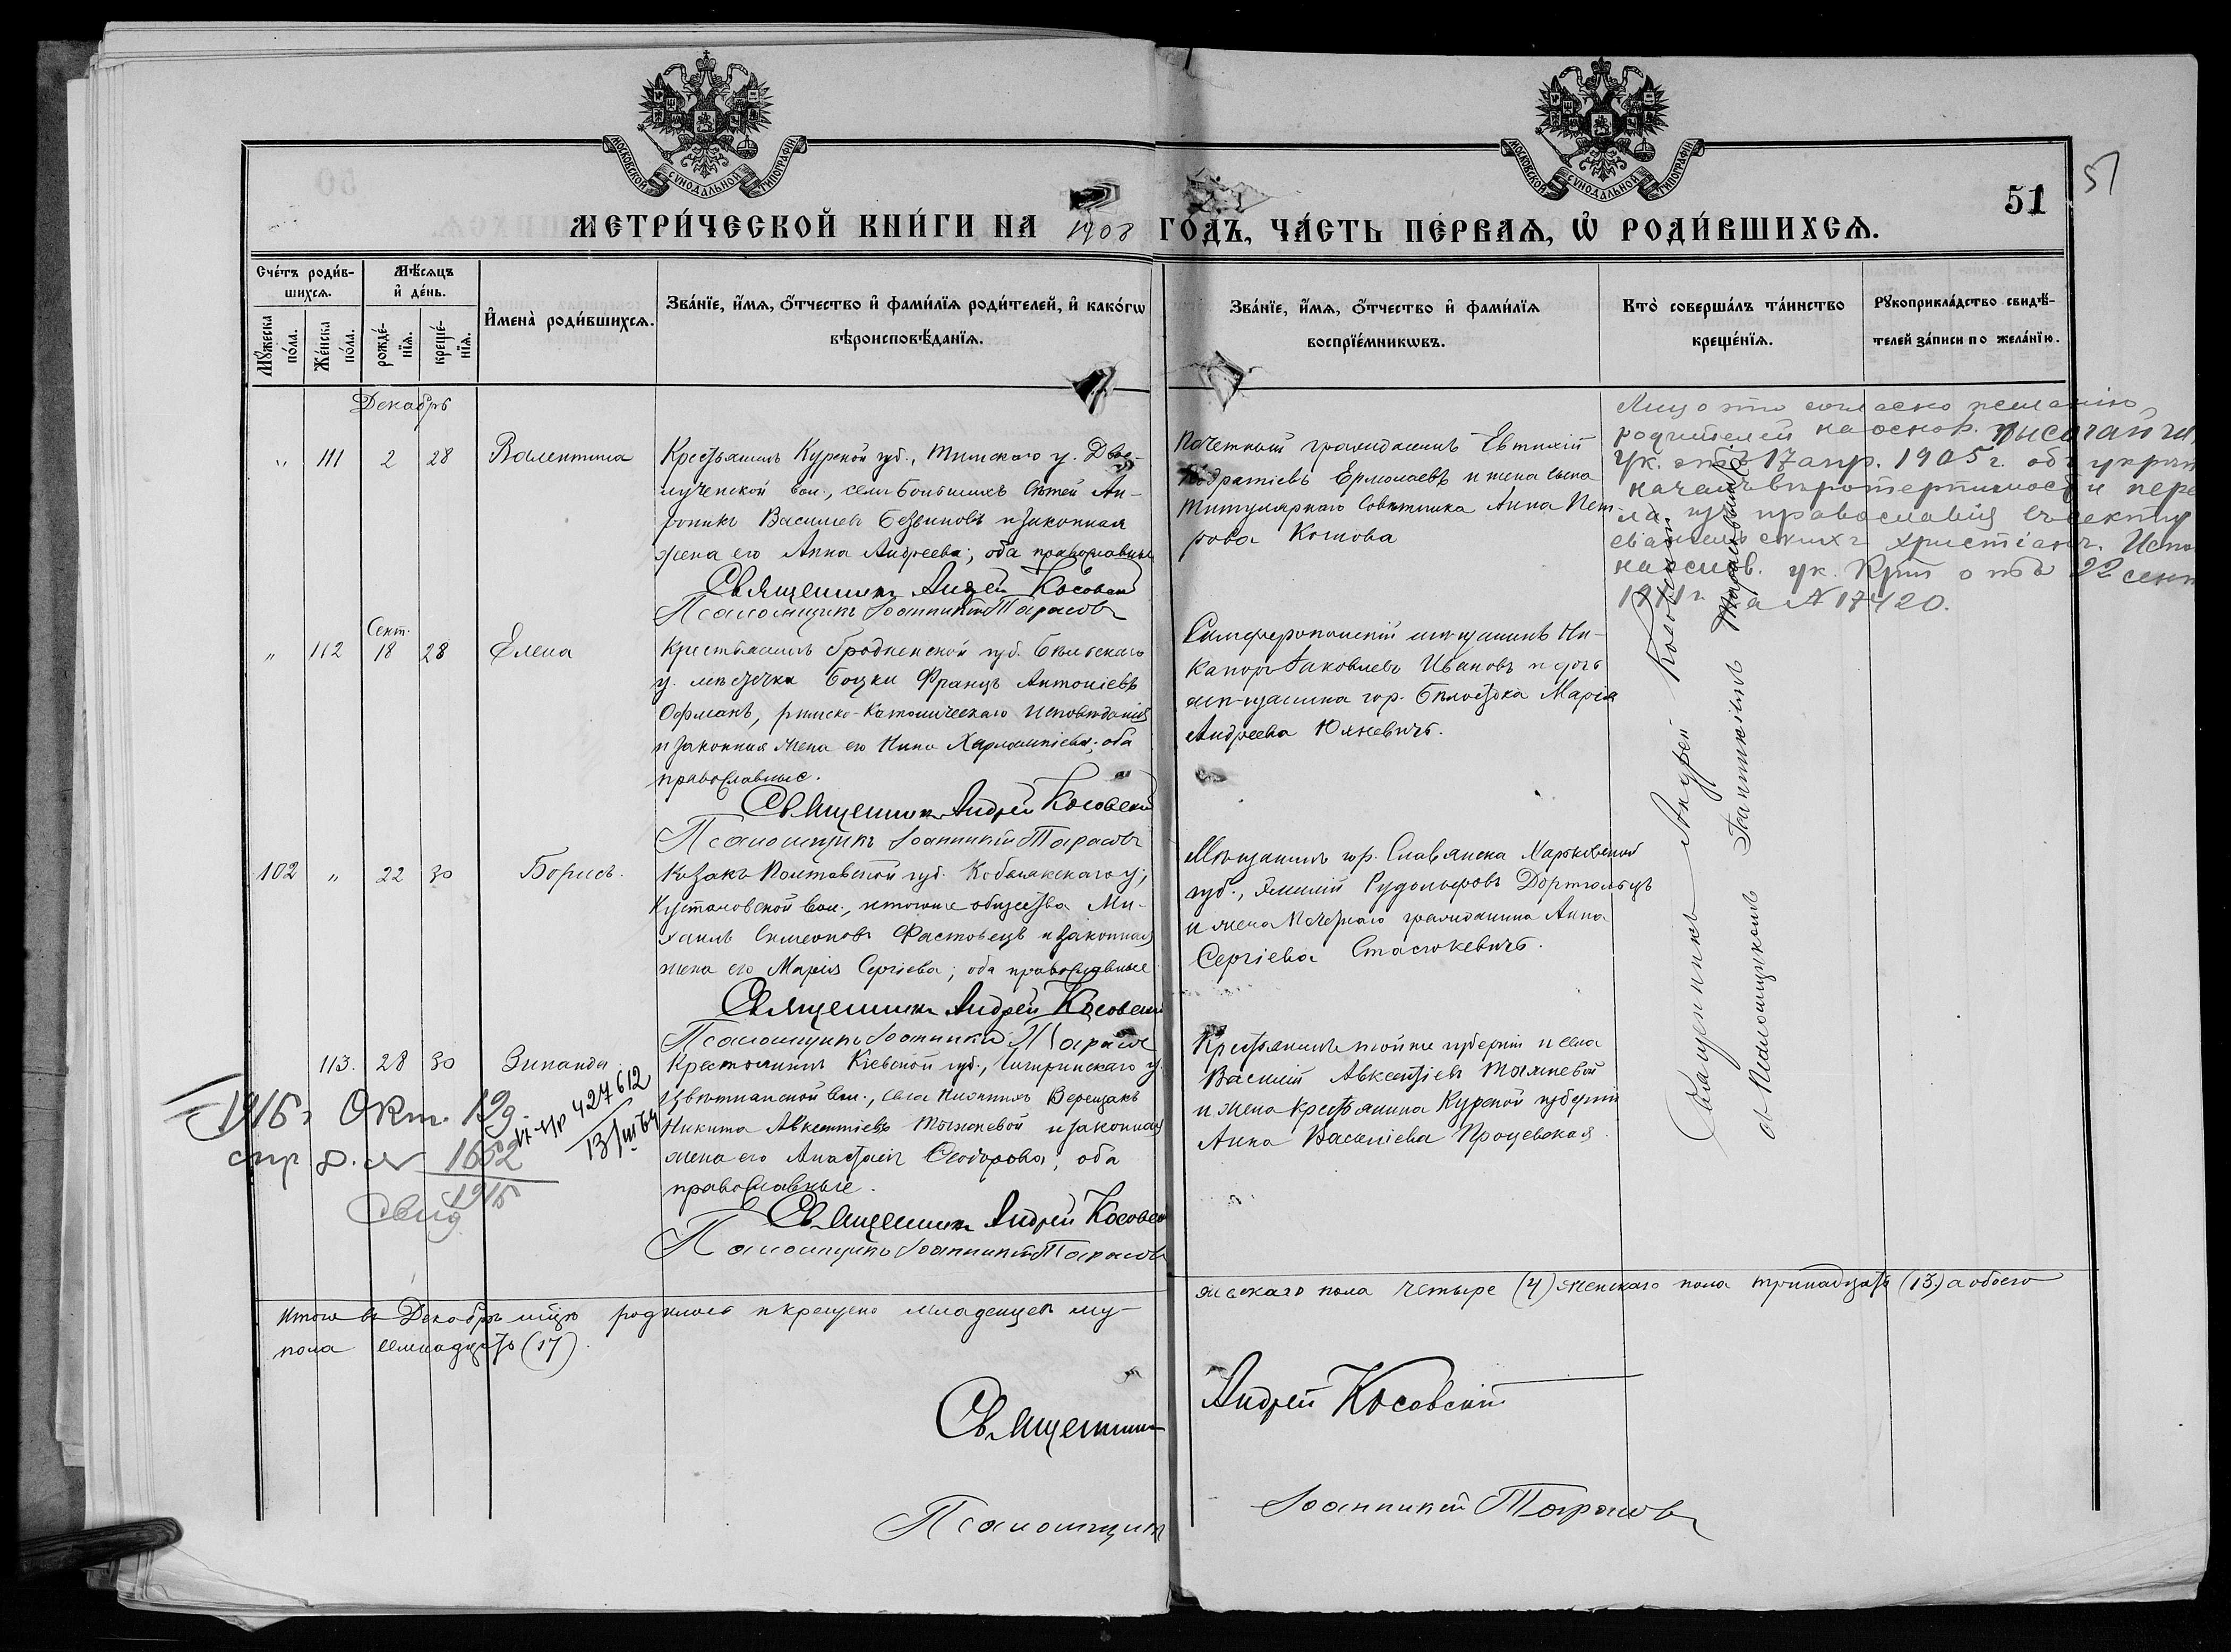 МОСКОВСКОЙ СѴНОДАЛЬНОЙ ТИПОГРАФІИ
МОСКОВСКОЙ СѴНОДАЛЬНОЙ ТИПОГРАФІИ
51
51
МЕТРИ́ЧЕСКОЙ КНИ́ГИ НА 1908 ГО́ДЪ, ЧА́СТЬ ПЕ́РВАѦ, Ѡ҆ РОДИ́ВШИХСѦ.
Сче́тъ роди́в-
шихсѧ.
Мѣ́сѧцъ
и҆ де́нь.
Мꙋ́жеска по́ла.
Же́нска по́ла.
рожде́-нїѧ.
креще́-нїѧ.
И҆мена̀ роди́вшихсѧ.
Зва́нїе, и҆́мѧ, ѻ҆́тчество и҆ фами́лїѧ роди́телей, и҆ како́гѡ
вѣроисповѣ́данїѧ.
Зва́нїе, и҆́мѧ, ѻ҆́тчество и҆ фами́лїѧ
воспрїе́мникѡвъ.
Кто̀ соверша́лъ та́инство
креще́нїѧ.
Рꙋкоприкла́дство свидѣ́-
телей за́писи по жела́нїю.
Декабрь
" 111 2 28 Валентина
Крестьянинъ Курской губ., Тимского у. Двое-
лученской вол., села Большихъ Сѣтей Ан-
роникъ Васильевъ Безвиновъ и законная
жена его Анна Андреева; оба православные
Священникъ Андрей Косовскій
Псаломщикъ Іоанникій Тарасовъ
Почетный гражданинъ Евтихій
Кодратіевъ Ермолаевъ и жена сына
Титулярнаго Совѣтника Анна Пет-
рова Котова
Лицо это согласно желанію
родителей на основ. высочайш.
Ук. отъ 17 апр. 1905 г. объ укрѣп
началъ вѣротерпимости пере
ла изъ православія въ секту
евангельскихъ христіанъ. Испо
на основ. ук. Крт о тъ 22 сент
1911 г. за № 17420.
" 112 Сент. 18 28 Елена
Крестьянинъ Гродненской губ. Бѣльскаго
у. мѣстечка Боцки Францъ Антоніевъ
Офманъ, римско-католическаго исповѣданія
и законная жена его Нина Харлампіева; оба
православные.
Священникъ Андрей Косовскій
Псаломщикъ Іоанникій Тарасовъ
Симферопольскій мѣщанинъ Ни-
каноръ Іаковлевъ Ивановъ и дочь
мѣщанина гор. Бѣлостока Марія
Андреева Юхневичъ.
102 " 22 30 Борисъ.
Козакъ Полтавской губ. Кобелякскаго у.,
Кустоловской вол., и того же общества Ми-
хаилъ Симеоновъ Фастовецъ и законная
жена его Марія Сергіева; оба православные
Священникъ Андрей Косовскій
Псаломщикъ Іоанникій Тарасовъ
Мѣщанинъ гор. Славянска Харьковской
губ., Эмилій Рудольфовъ Дортгольцъ
и жена Почетнаго гражданина Анна
Сергіева Стасюкевичъ.
113. 28 30 Зинаида
Крестьянинъ Кіевской губ., Чигиринскаго у.
Цвѣтнянской вол., села Нижнихъ Верещакъ
Никита Авксентіевъ Тяжневой и законная
жена его Анастасія Ѳеодорова, оба
православные.
Священникъ Андрей Косовскій
Псаломщикъ Іоанникій Тарасовъ
Крестьянинъ той же губерніи и села
Василій Авксентіевъ Тяжневой
и жена крестьянина Курской губерніи
Анна Василіева Процевская
1915 г Окт. 19 д.
427612
13/III 64
1652
1915
Свид.
Священникъ Андрей Косовскій
съ Псаломщикомъ Іоанникіемъ Тарасовымъ
Итого въ Декабрѣ мцѣ родилось и крещено младенцевъ му-
жескаго пола четыре (4) женскаго пола тринадцать (13) а обоего
пола семнадцать (17).
Священникъ Андрей Косовскій
Псаломщикъ Іоанникій Тарасовъ